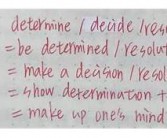 determine / decide / reso
= be determined / resolut
= make a decision / resol
= show determination t
= make up one's mind